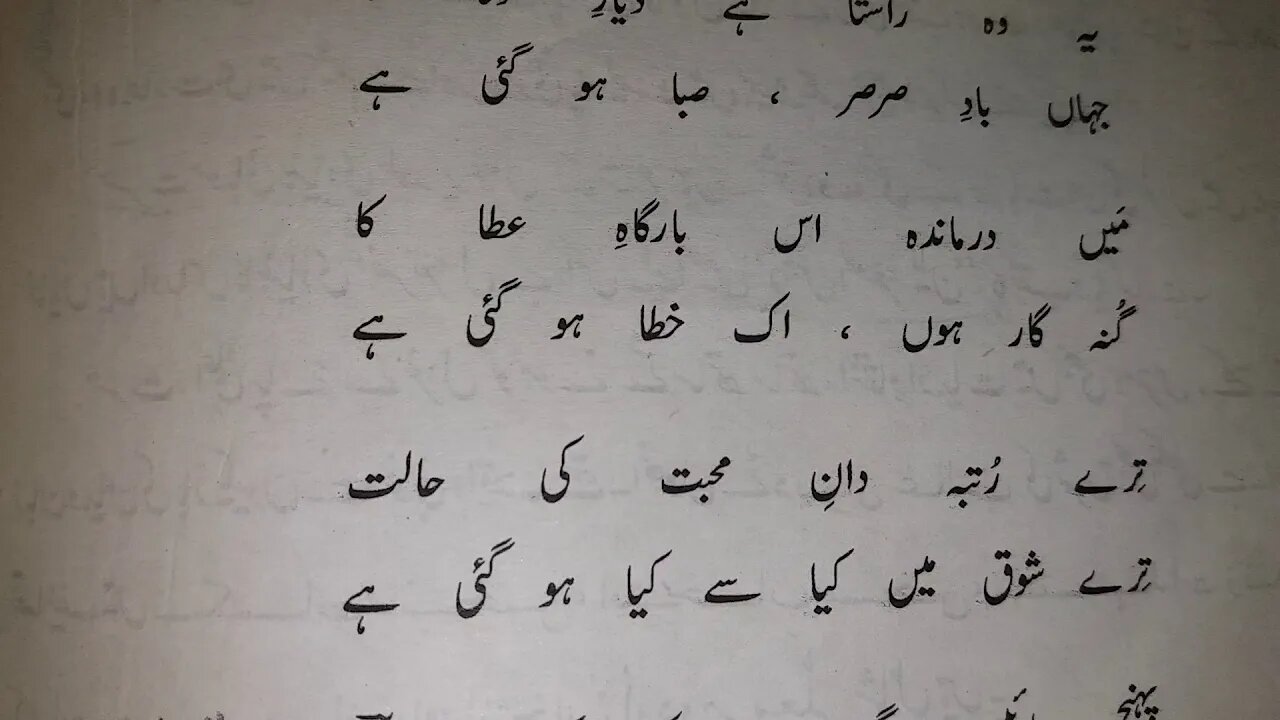 یہ وہ راستا ہے دیارِ
جہاں بادِ صرصر ، صبا ہو گئی ہے
مَیں درماندہ اس بارگاہِ عطا کا
گُنہ گار ہوں ، اک خطا ہو گئی ہے
تِرے رُتبہ دانِ محبت کی حالت
تِرے شوق میں کیا سے کیا ہو گئی ہے
پہنچ